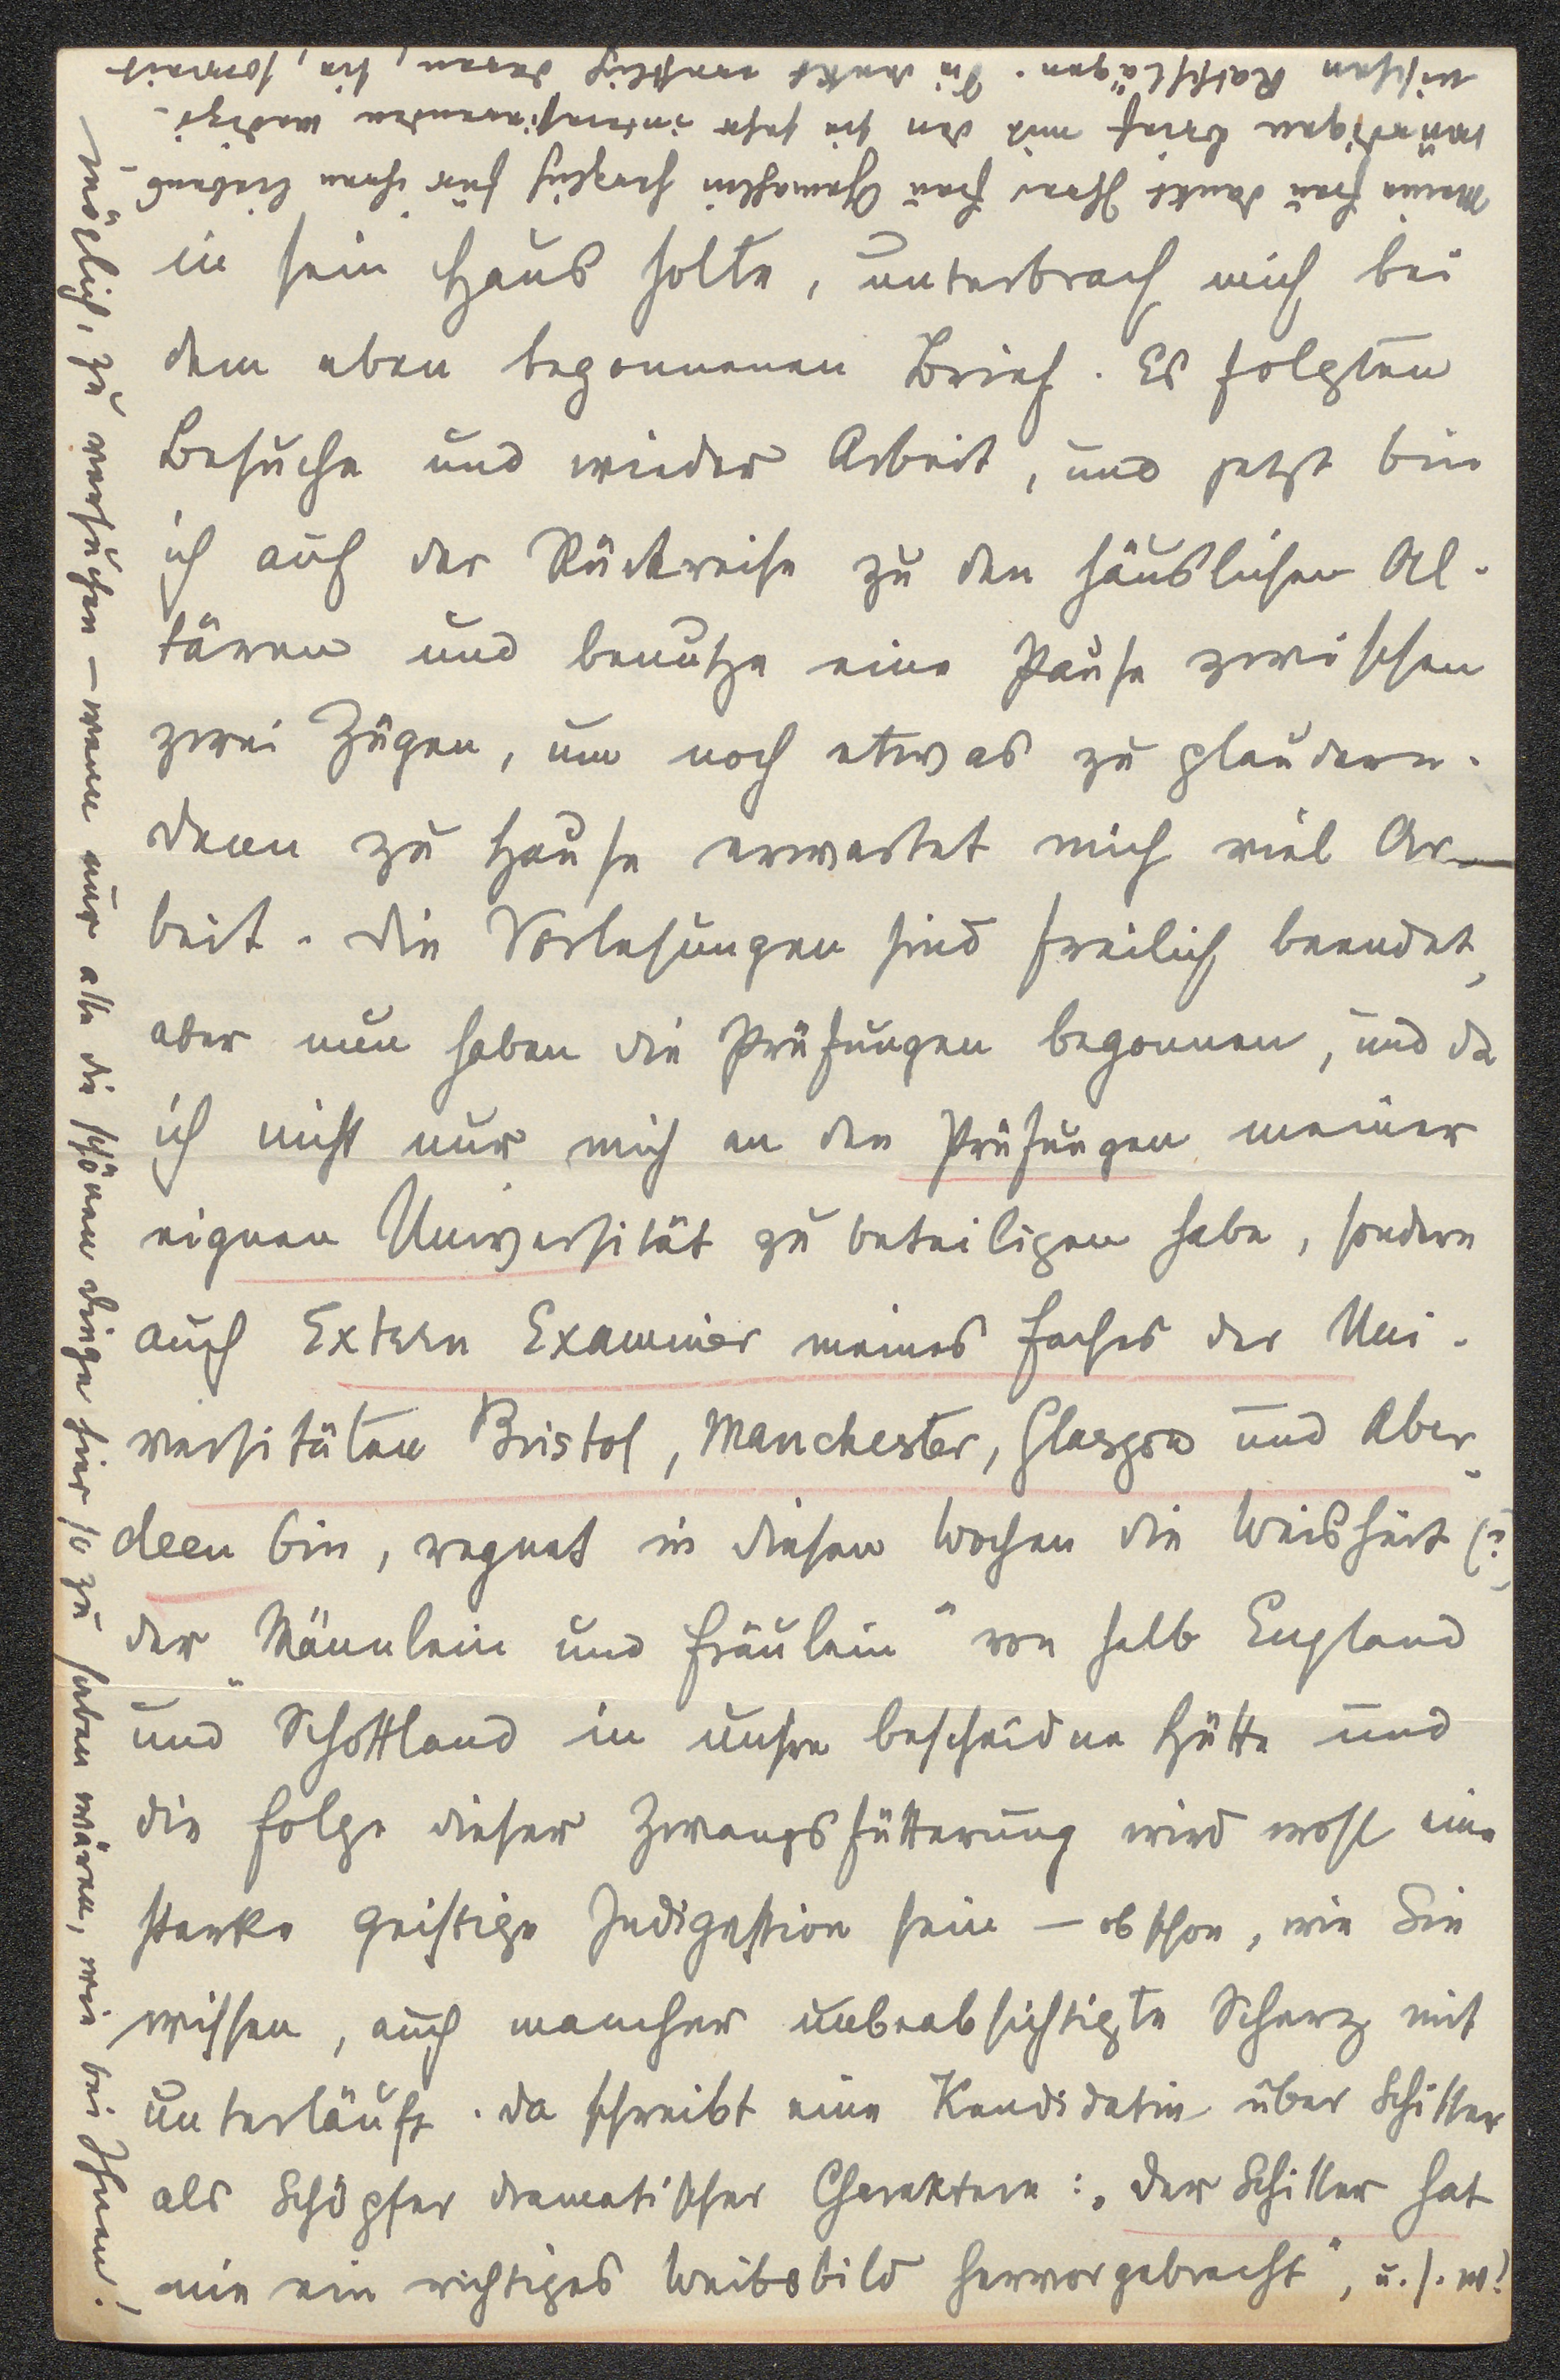 in sein Haus holte, unterbrach mich bei
dem eben begonnenen Brief. Es folgten
Besuche und wieder Arbeit, und jetzt bin
ich auf der Rückreise zu den häuslichen Al-
tären und benutze eine Pause zwischen
zwei Zügen, um noch etwas zu plaudern.
denn zu Hause erwartet mich viel Ar-
beit. Die Vorlesungen sind freilich beendet,
aber nun haben die Prüfungen begonnen, und da
ich nicht nur mich an den Prüfungen meiner
eignen Universität zu beteiligen habe, sondern
auch Extern Examiner meines Faches der Uni-
versitäten Bristol, Manchester, Glasgow und Aber-
deen bin, regnet in diesen Wochen die Weisheit (?)
der „Männlein und Fräulein" von halb England
und Schottland in unsre bescheidne Hütte und
die Folge dieser Zwangsfütterung wird wohl eine
starke geistige Indigestion sein – obschon, wie Sie
wissen, auch mancher unbeabsichtigte Scherz mit
unterläuft. Da schreibt eine Kandidatin über Schiller
als Schöpfer dramatischer Charaktere: „Der Schiller hat
nie ein richtiges Weibsbild hervorgebracht", u.s.w!
Meine Frau dankt Ihrer Frau Gemahlin herzlich für ihren liebens-
würdigen Brief mit den sie sehr interessierenden medizi-
nischen Ratschlägen. Sie denkt ernstlich daran, sie, soweit
möglich, zu versuchen – wenn nur alle die schönen Dinge hier so zu haben wären, wie bei Ihnen!